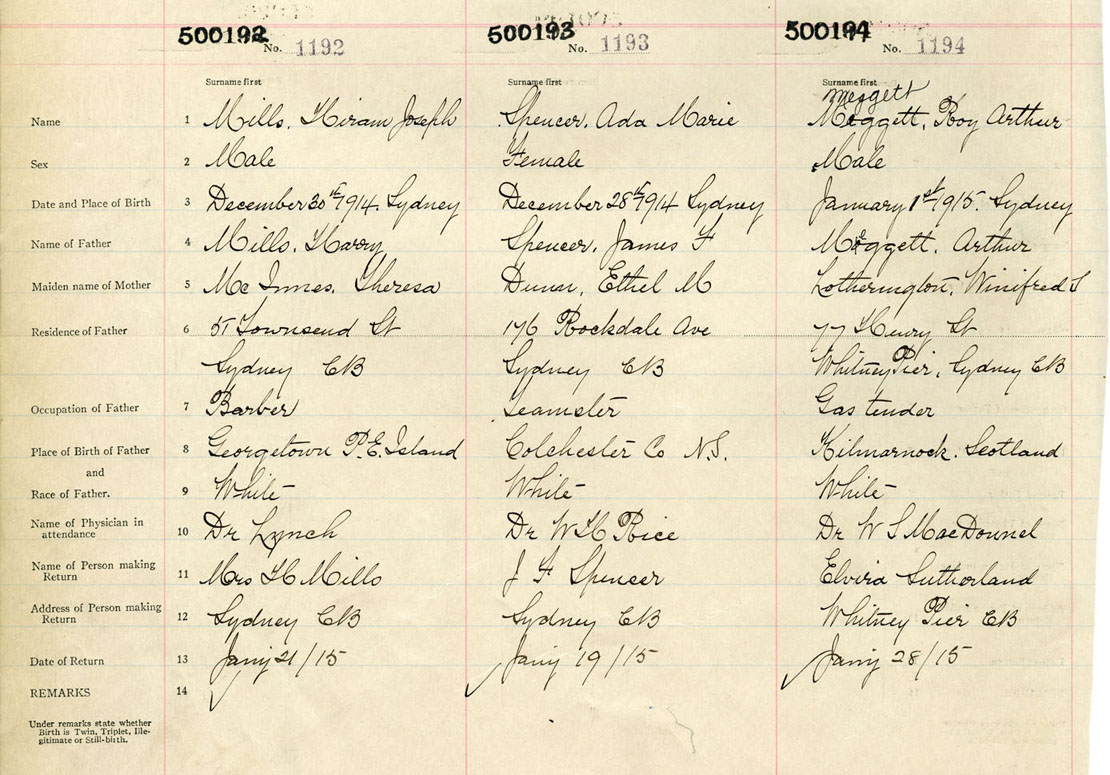 500192 No. 1192 500193 No. 1193 500194 No. 1194
Surname first Surname first Surname first
Meggett
Name 1 Mills, Hiram Joseph Spencer, Ada Marie Meggett, Roy Arthur
Sex 2 Male Female Male
Date and Place of Birth 3 December 30th 1914. Sydney December 28th 1914 Sydney January 1st 1915. Sydney
Name of Father 4 Mills, Harry Spencer, James F Meggett, Arthur
Maiden name of Mother 5 Mc Innes, Theresa Dunn, Ethel M Lotherington, Winifred S
Residence of Father 6 51 Townsend St 176 Rockdale Ave 77 Henry St
Sydney CB Sydney CB Whitney Pier, Sydney CB
Occupation of Father 7 Barber Teamster Gas tender
Place of Birth of Father 8 Georgetown P.E. Island Colchester Co N.S. Kilmarnock. Scotland
and
Race of Father. 9 White White White
Name of Physician in
attendance 10 Dr Lynch Dr W H Rice Dr W S MacDonnel
Name of Person making
Return 11 Mrs H Mills J F Spencer Elvira Sutherland
Address of Person making
Return 12 Sydney CB Sydney CB Whitney Pier CB
Date of Return 13 Jany 21/15 Jany 19/15 Jany 28/15
REMARKS 14
Under remarks state whether
Birth is Twin, Triplet, Ille-
gitimate or Still-birth.